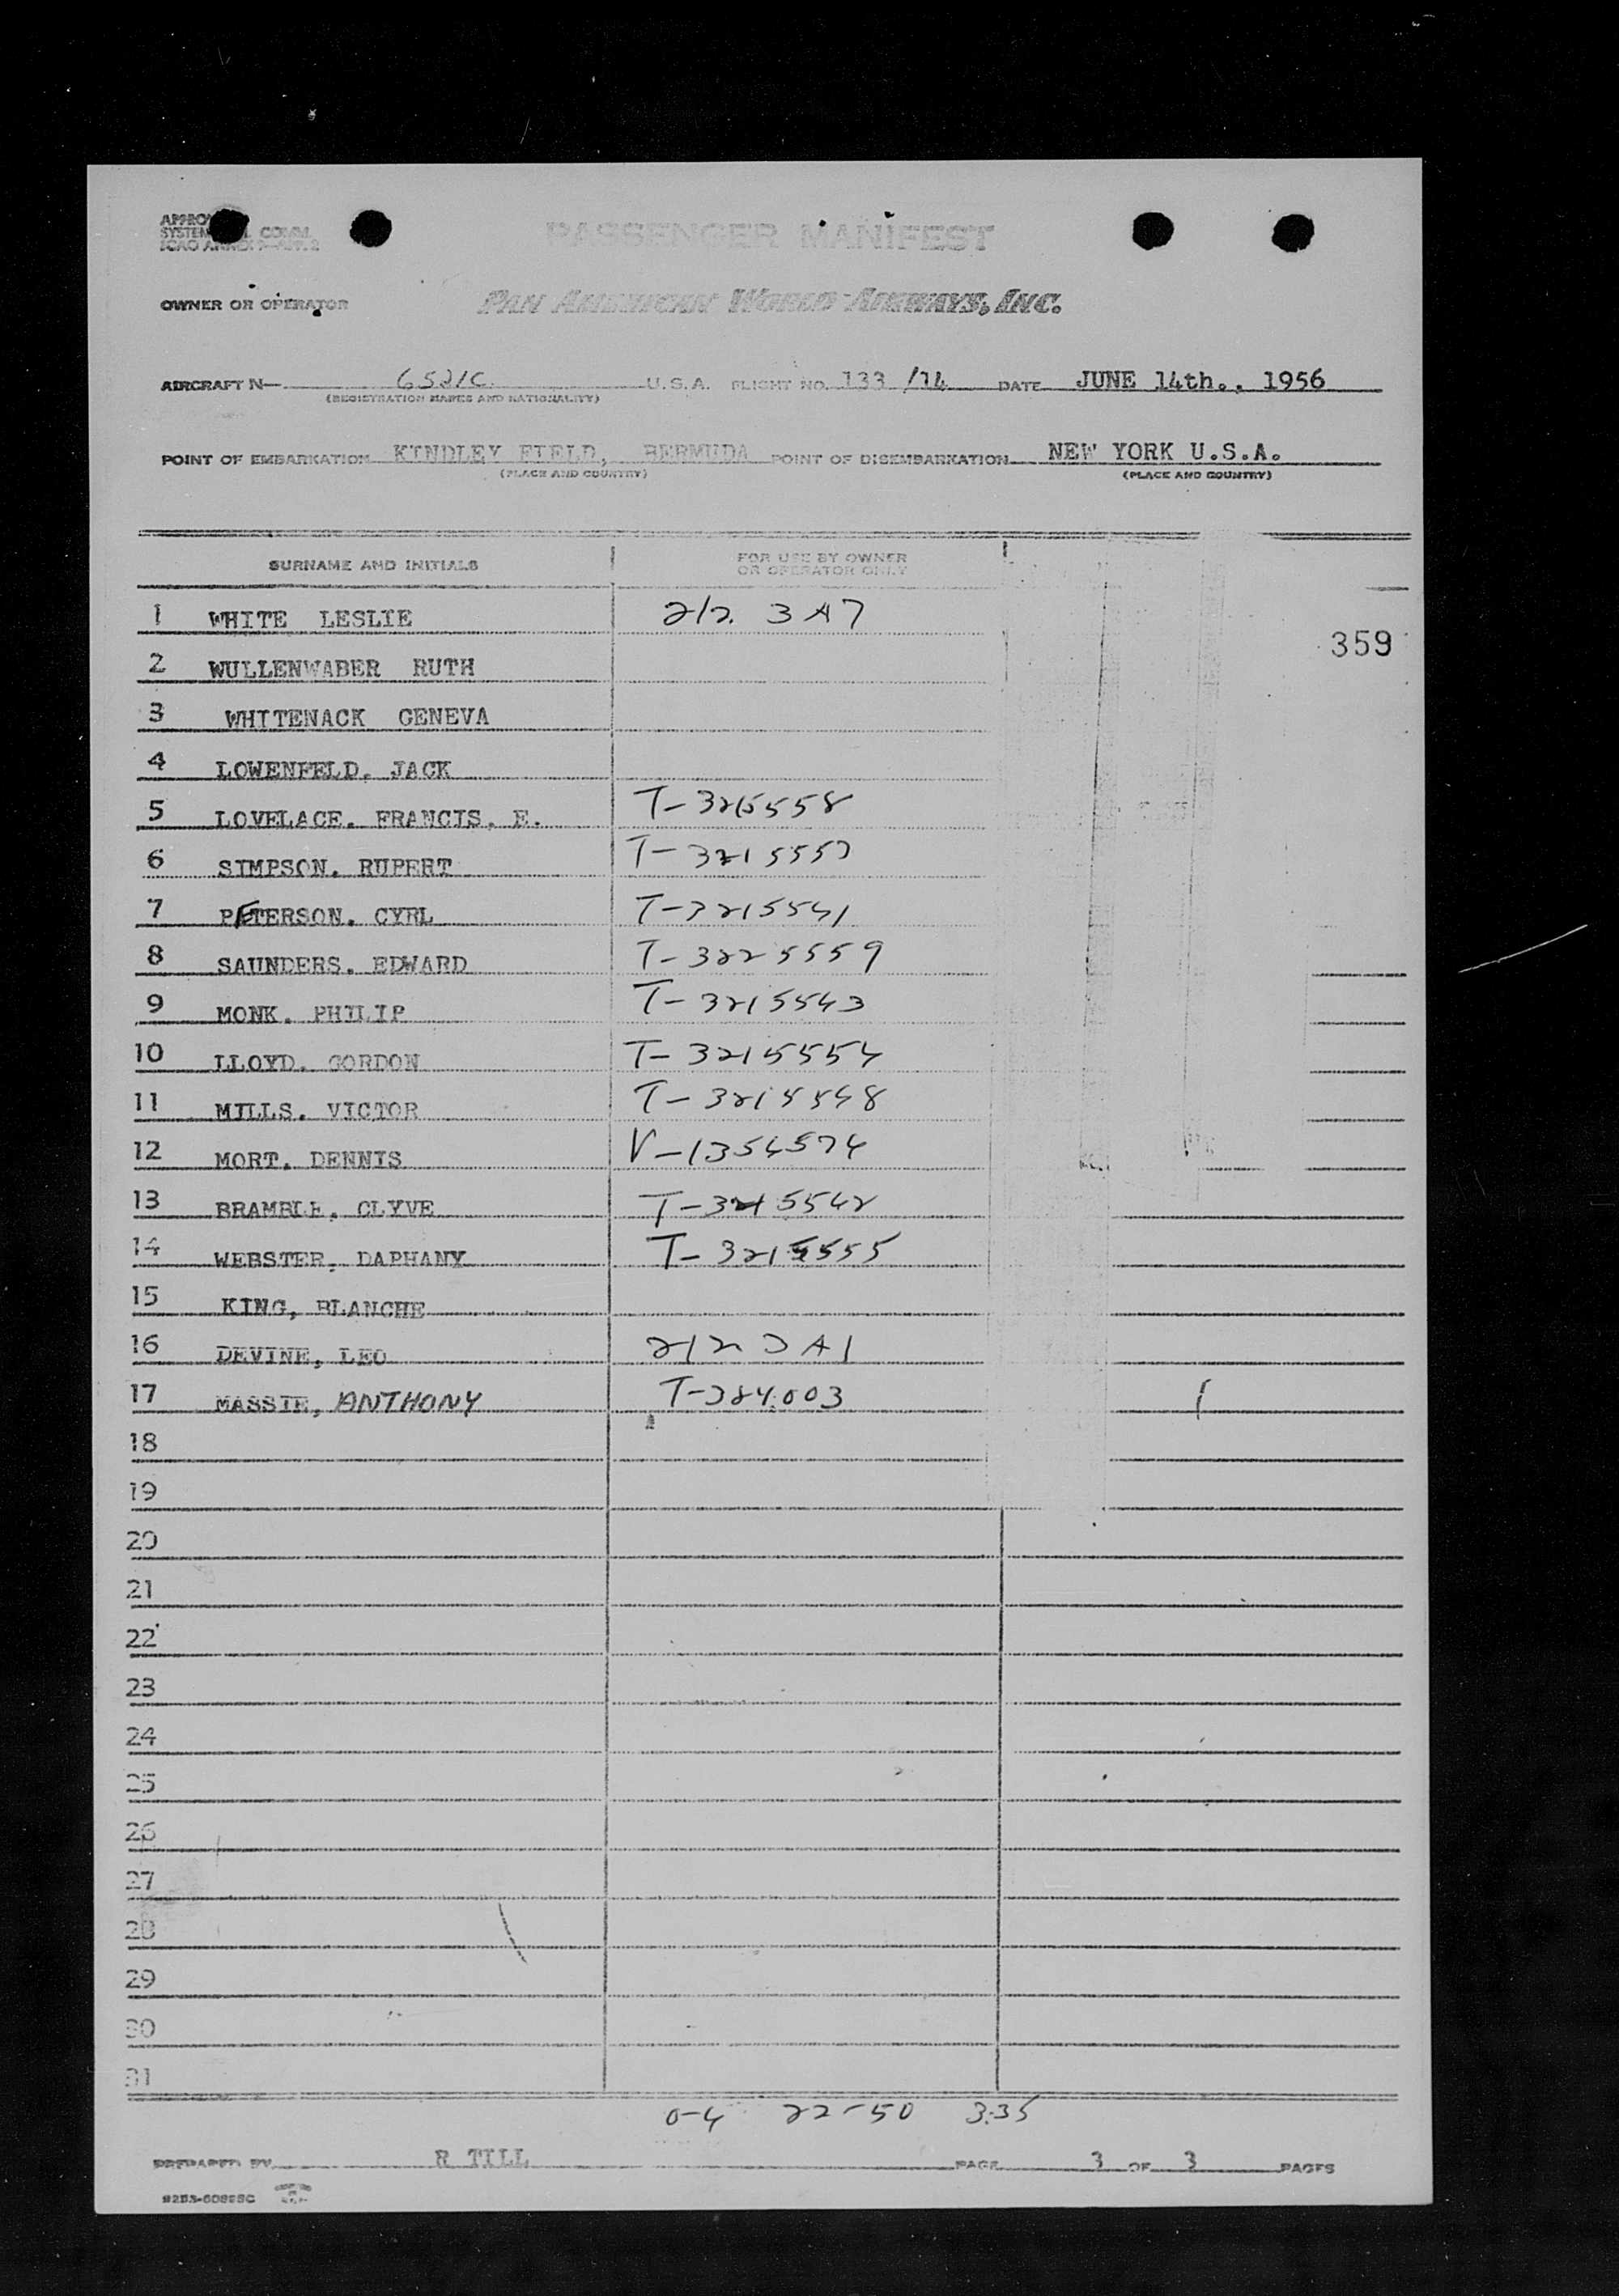 PASSENGER MANIFEST
OWNER OR OPERATOR PAN AMERICAN WORLD AIRWAYS, INC.
AIRCRAFT N— 6521C U.S.A. FLIGHT NO. 133 /14 DATE JUNE 14th., 1956
(REGISTRATION MARKS AND NATIONALITY)
POINT OF EMBARKATION KINDLEY FIELD, BERMUDA POINT OF DISEMBARKATION NEW YORK U.S.A.
(PLACE AND COUNTRY) (PLACE AND COUNTRY)
SURNAME AND INITIALS FOR USE BY OWNER
OR OPERATOR ONLY
1 WHITE LESLIE 212. 3 A7
359
2 WULLENWABER RUTH
3 WHITENACK GENEVA
4 LOWENFELD. JACK
5 LOVELACE. FRANCIS. E. T-3215558
6 SIMPSON. RUPERT
7 PETERSON. CYRL T-3215541
8 SAUNDERS. EDWARD T-3225559
9 MONK. PHILIP T-3215543
10 LLOYD. GORDON T-3215554
11 MILLS. VICTOR T-3215548
12 MORT. DENNIS V-1354574
13 BRAMBLE. CLYVE T-3215542
14 WEBSTER. DAPHANY T-3215555
15 KING, BLANCHE
16 DEVINE, LEO 212 3 A1
17 MASSIE, ANTHONY T-384003
18
19
20
21
22
23
24
25
26
27
28
29
30
31
0-4 22-50 3:35
PREPARED BY R TILL PAGE 3 OF 3 PAGES